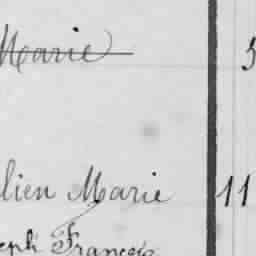 Marie 5
lien Marie 11
eph François